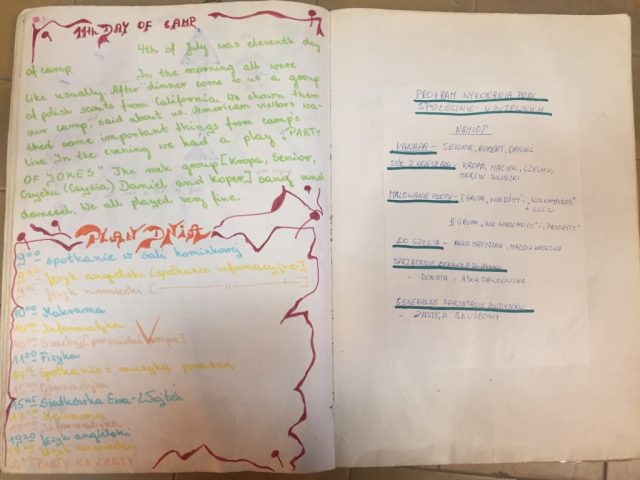 11th DAY OF CAMP
4th of July was eleventh day
of camp. In the morning all were
like usually. After dinner some to us a group
of polish scouts from California. We shown them
our camp, said about us. American visitors wa-
thed some important things from camp's
live. In the evening we had a play "PARTY
OF JOKES". The rock group [Kropa, Senior,
Czychu (Czysia) Daniel and Koper] sang and
danced. We all played very fine.
PLAN DNIA
9:00 spotkanie w Sali kominkowej
język angielski [spotkanie informacyjne]
język niemiecki [ — " — ]
10:00 Makrama
10:00 Informatyka
10:00 Szachy [prowadzi Kropa]
11:00 Fizyka
Spotkanie z muzyką poważną
Gimnastyka
15:45 Siatkówka Ewa - Wojtek
Makrama
Informatyka
19:00 język angielski
język niemiecki
PARTY NA ŻARTY
PROGRAM WYKONANIA PRAC
SPOŁECZNIE - UŻYTECZNYCH
NAMIOT
KANAPA - SENIOR, ROBERT, DANIEL
KROPA, MACIEK, CZYCHU,
MARCIN
MALOWANIE PŁOTU - I GRUPA "WIEDŹMY" i "SOS KAMPINOS"
+ LUCIU
II GRUPA "NIE WIADOMO CO" i "PASOŻYTY"
DO SZYCIA - ANKA MATYSIAK, MADZIA
SPRZĄTANIE
- DONATA i AŚKA PAWŁOWSKA
GENERALNE SPRZĄTANIE BUDYNKU
- ZASTĘP SŁUŻBOWY